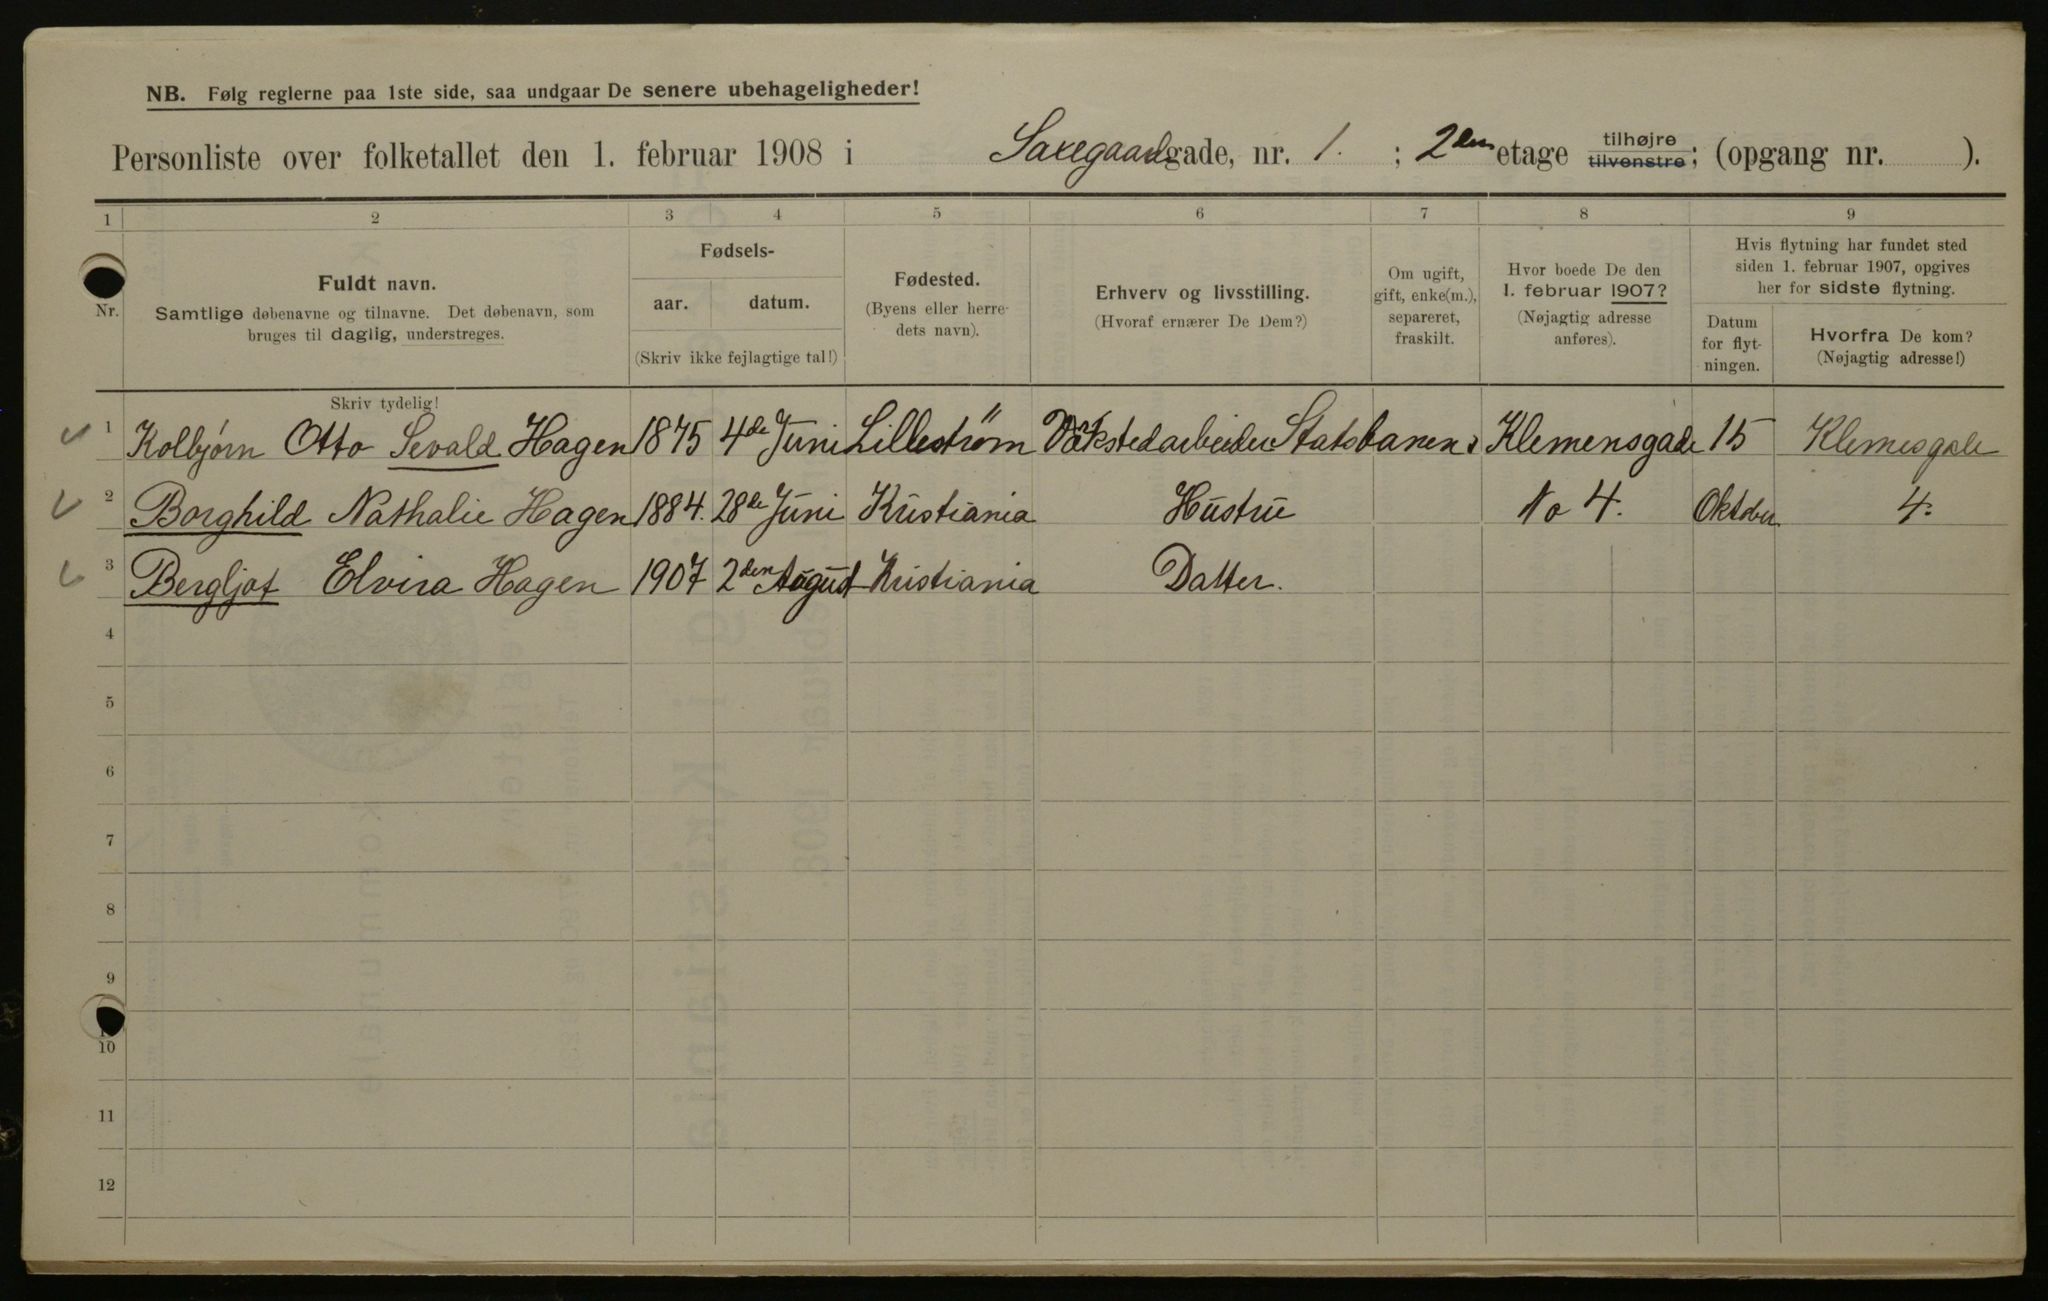 NB. Følg reglerne paa 1ste side, saa undgaar De senere ubehageligheder!
Personliste over folketallet den 1. februar 1908 i Saxegaardgade, nr. 1. ; 2den etage tilhøjre tilvenstre; (opgang nr. ).
1 2 3 4 5 6 7 8 9
Nr.
Fuldt navn.
Samtlige døbenavne og tilnavne. Det døbenavn, som
bruges til daglig, understreges.
Skriv tydelig!
Fødsels-
aar. datum.
(Skriv ikke fejlagtige tal!)
Fødested.
(Byens eller herre-
dets navn).
Erhverv og livsstilling.
(Hvoraf ernærer De Dem?)
Om ugift,
gift, enke(m.),
separeret,
fraskilt.
Hvor boede De den
1. februar 1907?
(Nøjagtig adresse
anføres).
Hvis flytning har fundet sted
siden 1. februar 1907, opgives
her for sidste flytning.
Datum
for flyt-
ningen.
Hvorfra De kom?
(Nøjagtig adresse!)
1 Kolbjørn Otto Sevald Hagen 1875 4de Juni Lillestrøm Værkstedarbeider Statsbanen Klemensgade 15 Klemesgade
2 Borghild Nathalie Hagen 1884. 28de Juni Kristiania Hustru No 4. Oktober 4.
3 Bergljot Elvira Hagen 1907 2den August Kristiania Datter.
4
5
6
7
8
9
10
11
12